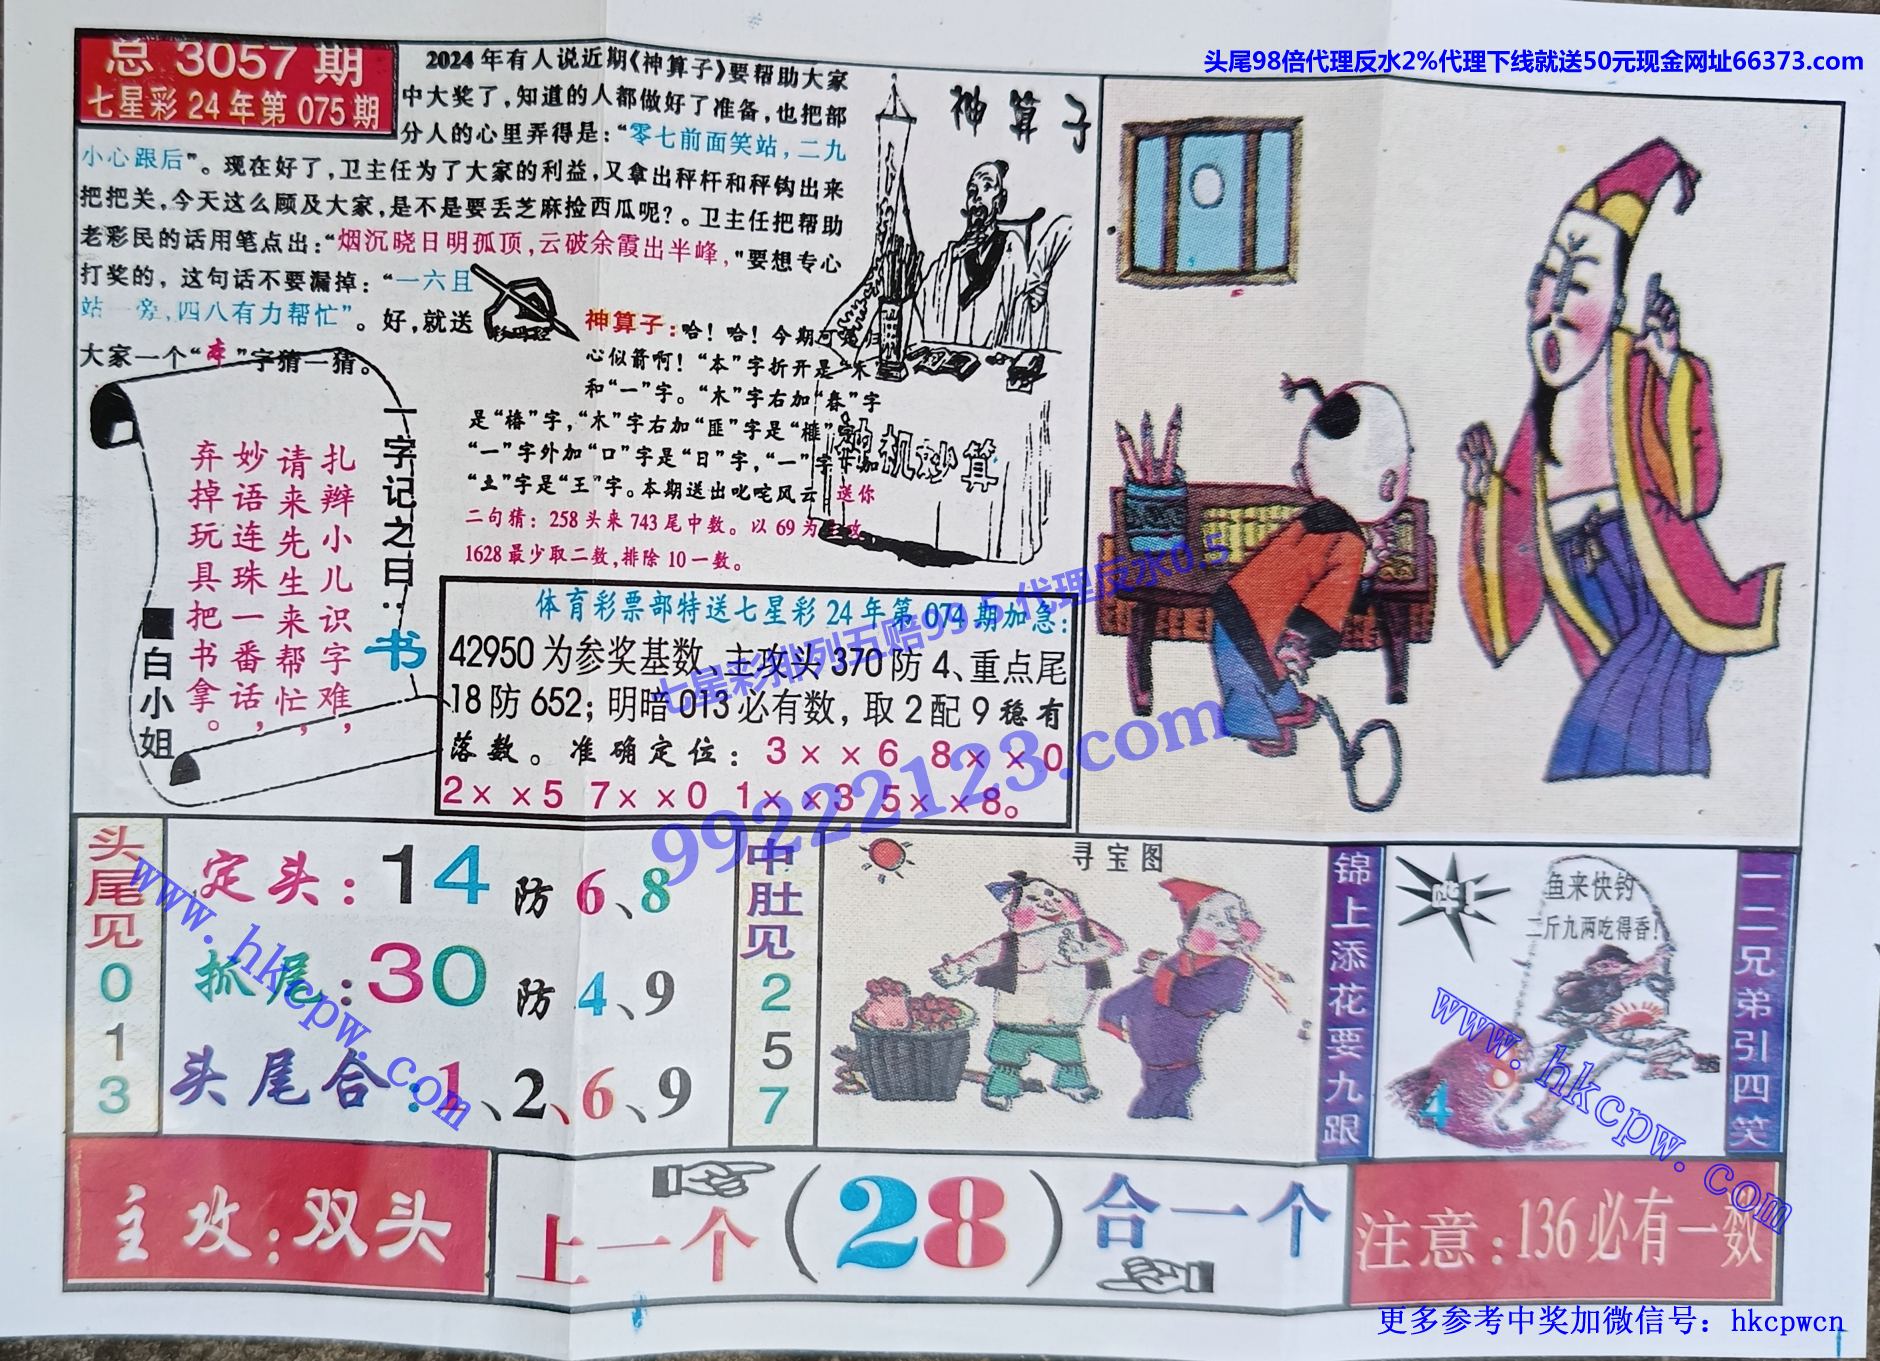 头尾98倍代理反水2%代理下线就送50元现金网址66373.com
总 3057 期
七星彩 24 年第 075 期
2024 年有人说近期《神算子》要帮助大家
中大奖了，知道的人都做好了准备，也把部
分人的心里弄得是：“零七前面笑站，二九
小心跟后”。现在好了，卫主任为了大家的利益，又拿出秤杆和秤钩出来
把把关，今天这么顾及大家，是不是要丢芝麻捡西瓜呢？。卫主任把帮助
老彩民的话用笔点出：“烟沉晓日明孤顶，云破余霞出半峰，”要想专心
打奖的，这句话不要漏掉：“一六且
站一旁，四八有力帮忙”。好，就送
大家一个“本”字猜一猜。
神算子
神算子：哈！哈！今期可是归
心似箭啊！“本”字折开是“木”
和“一”字。“木”字右加“春”字
是“椿”字，“木”字右加“匪”字是“榧”字
“一”字外加“口”字是“日”字，“一”字下加
“土”字是“王”字。本期送出叱咤风云 送你
二句猜：258 头来 743 尾中数。以 69 为主攻
1628 最少取二数，排除 10 一数。
神机妙算
一字记之曰：书
扎辫小儿识字难，
请来先生来帮忙，
妙语连珠一番话，
弃掉玩具把书拿。
■白小姐
体育彩票部特送七星彩 24 年第 074 期加急：
42950 为参奖基数、主攻头 370 防 4、重点尾
18 防 652；明暗 013 必有数，取 2 配 9 稳有
落数。准确定位：3××6 8××0
2××5 7××0 1××3 5××8。
七星彩排列五赔99.5 代理反水0.5
99222123.com
头尾见
0
1
3
定头：14 防 6、8
抓尾：30 防 4、9
头尾合：1、2、6、9
www.hkcpw.com
中肚见
2
5
7
寻宝图
锦上添花要九跟
鱼来快钓
二斤九两吃得香！
4
一二兄弟引四笑
www.hkcpw.com
主攻：双头
上一个（28）合一个
注意：136 必有一数
更多参考中奖加微信号：hkcpwcn